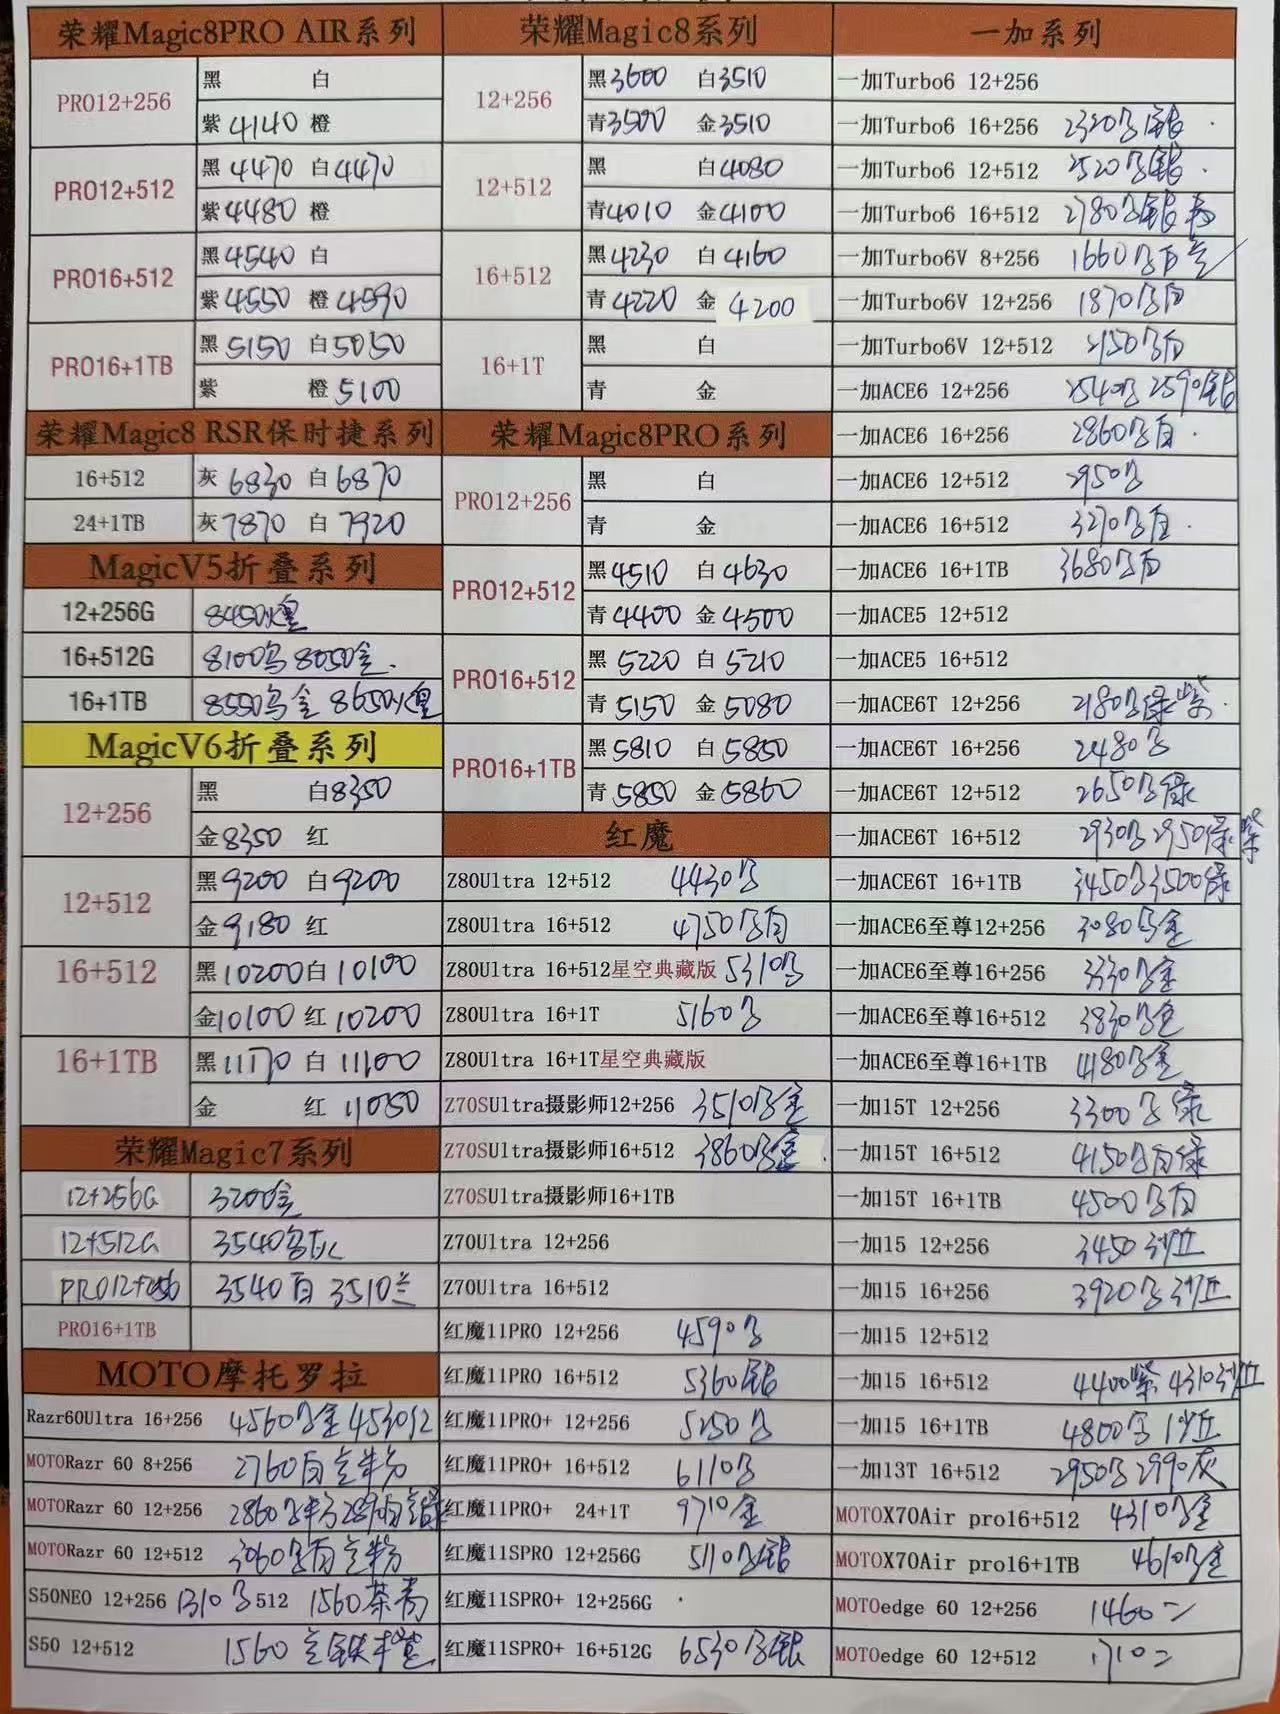 荣耀Magic8PRO AIR系列
PRO12+256
黑 白
紫4140 橙
PRO12+512
黑4470 白4470
紫4480 橙
PRO16+512
黑4540 白
紫4550 橙4590
PRO16+1TB
黑5150 白5050
紫 橙5100
荣耀Magic8 RSR保时捷系列
16+512 灰6830 白6870
24+1TB 灰7870 白7920
MagicV5折叠系列
12+256G 8450
16+512G 8100 8050金
16+1TB 8550 金 8650
MagicV6折叠系列
12+256
黑 白8350
金8350 红
12+512
黑9200 白9200
金9180 红
16+512
黑10200 白10100
金10100 红10200
16+1TB
黑11170 白11100
金 红11050
荣耀Magic7系列
12+256G 3200金
12+512G 3540 灰
PRO12+256 3540白 3510兰
PRO16+1TB
MOTO摩托罗拉
Razr60Ultra 16+256 4560 金 4530红
MOTORazr 60 8+256 2760白 粉
MOTORazr 60 12+256 2860 粉
MOTORazr 60 12+512 3060 白 粉
S50NEO 12+256 1310 512 1560茶青
S50 12+512 1560
荣耀Magic8系列
12+256
黑3600 白3510
青3500 金3510
12+512
黑 白4080
青4010 金4100
16+512
黑4230 白4160
青4220 金4200
16+1T
黑 白
青 金
荣耀Magic8PRO系列
PRO12+256
黑 白
青 金
PRO12+512
黑4510 白4630
青4400 金4500
PRO16+512
黑5220 白5210
青5150 金5080
PRO16+1TB
黑5810 白5850
青5850 金5860
红魔
Z80Ultra 12+512 4430
Z80Ultra 16+512 4750 白
Z80Ultra 16+512星空典藏版 5310
Z80Ultra 16+1T 5160
Z80Ultra 16+1T星空典藏版
Z70SUltra摄影师12+256 3510 金
Z70SUltra摄影师16+512 3860 金
Z70SUltra摄影师16+1TB
Z70Ultra 12+256
Z70Ultra 16+512
红魔11PRO 12+256 4590
红魔11PRO 16+512 5360银
红魔11PRO+ 12+256 5250
红魔11PRO+ 16+512 6110
红魔11PRO+ 24+1T 9710金
红魔11SPRO 12+256G 5110 银
红魔11SPRO+ 12+256G
红魔11SPRO+ 16+512G 6530 银
一加系列
一加Turbo6 12+256
一加Turbo6 16+256 2320 银
一加Turbo6 12+512 2520 银
一加Turbo6 16+512 2780 银 青
一加Turbo6V 8+256 1660 白兰
一加Turbo6V 12+256 1870 白
一加Turbo6V 12+512 2150 白
一加ACE6 12+256 2540 2590银
一加ACE6 16+256 2860 白
一加ACE6 12+512 2950
一加ACE6 16+512 3270 白
一加ACE6 16+1TB 3680 白
一加ACE5 12+512
一加ACE5 16+512
一加ACE6T 12+256 2180 绿紫
一加ACE6T 16+256 2480
一加ACE6T 12+512 2650 绿
一加ACE6T 16+512 2930 2950绿紫
一加ACE6T 16+1TB 3450 3500绿
一加ACE6至尊12+256 3080 金
一加ACE6至尊16+256 3330 金
一加ACE6至尊16+512 3830 金
一加ACE6至尊16+1TB 4180 金
一加15T 12+256 3300 绿
一加15T 16+512 4150 白绿
一加15T 16+1TB 4500 白
一加15 12+256 3450 沙丘
一加15 16+256 3920 沙丘
一加15 12+512
一加15 16+512 4400紫 4310沙丘
一加15 16+1TB 4800 沙丘
一加13T 16+512 2950 2990灰
MOTOX70Air pro16+512 4310 金
MOTOX70Air pro16+1TB 4610 金
MOTOedge 60 12+256 1460二
MOTOedge 60 12+512 1710二